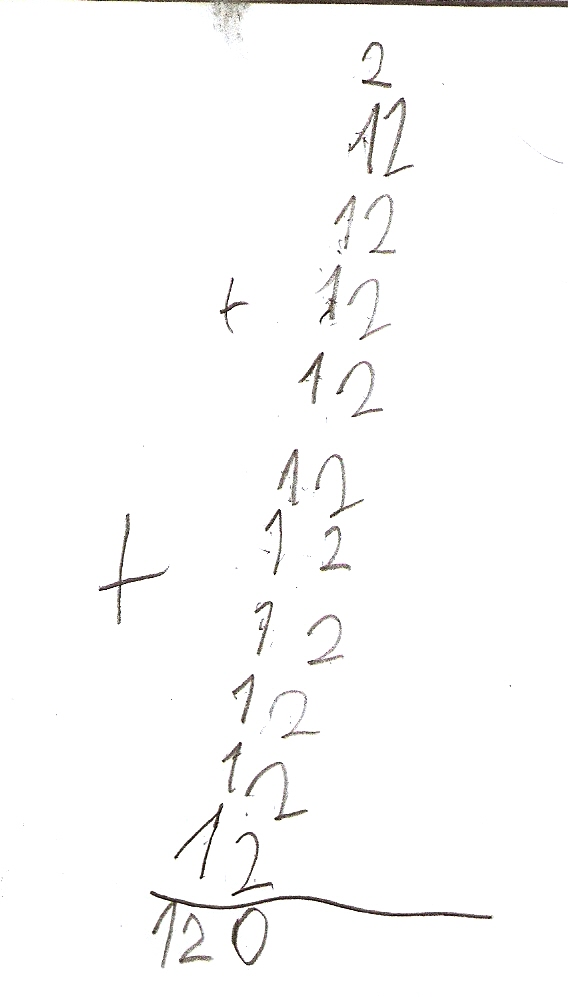 2
12
12
+ 12
12
12
12
+
12
12
12
12
120